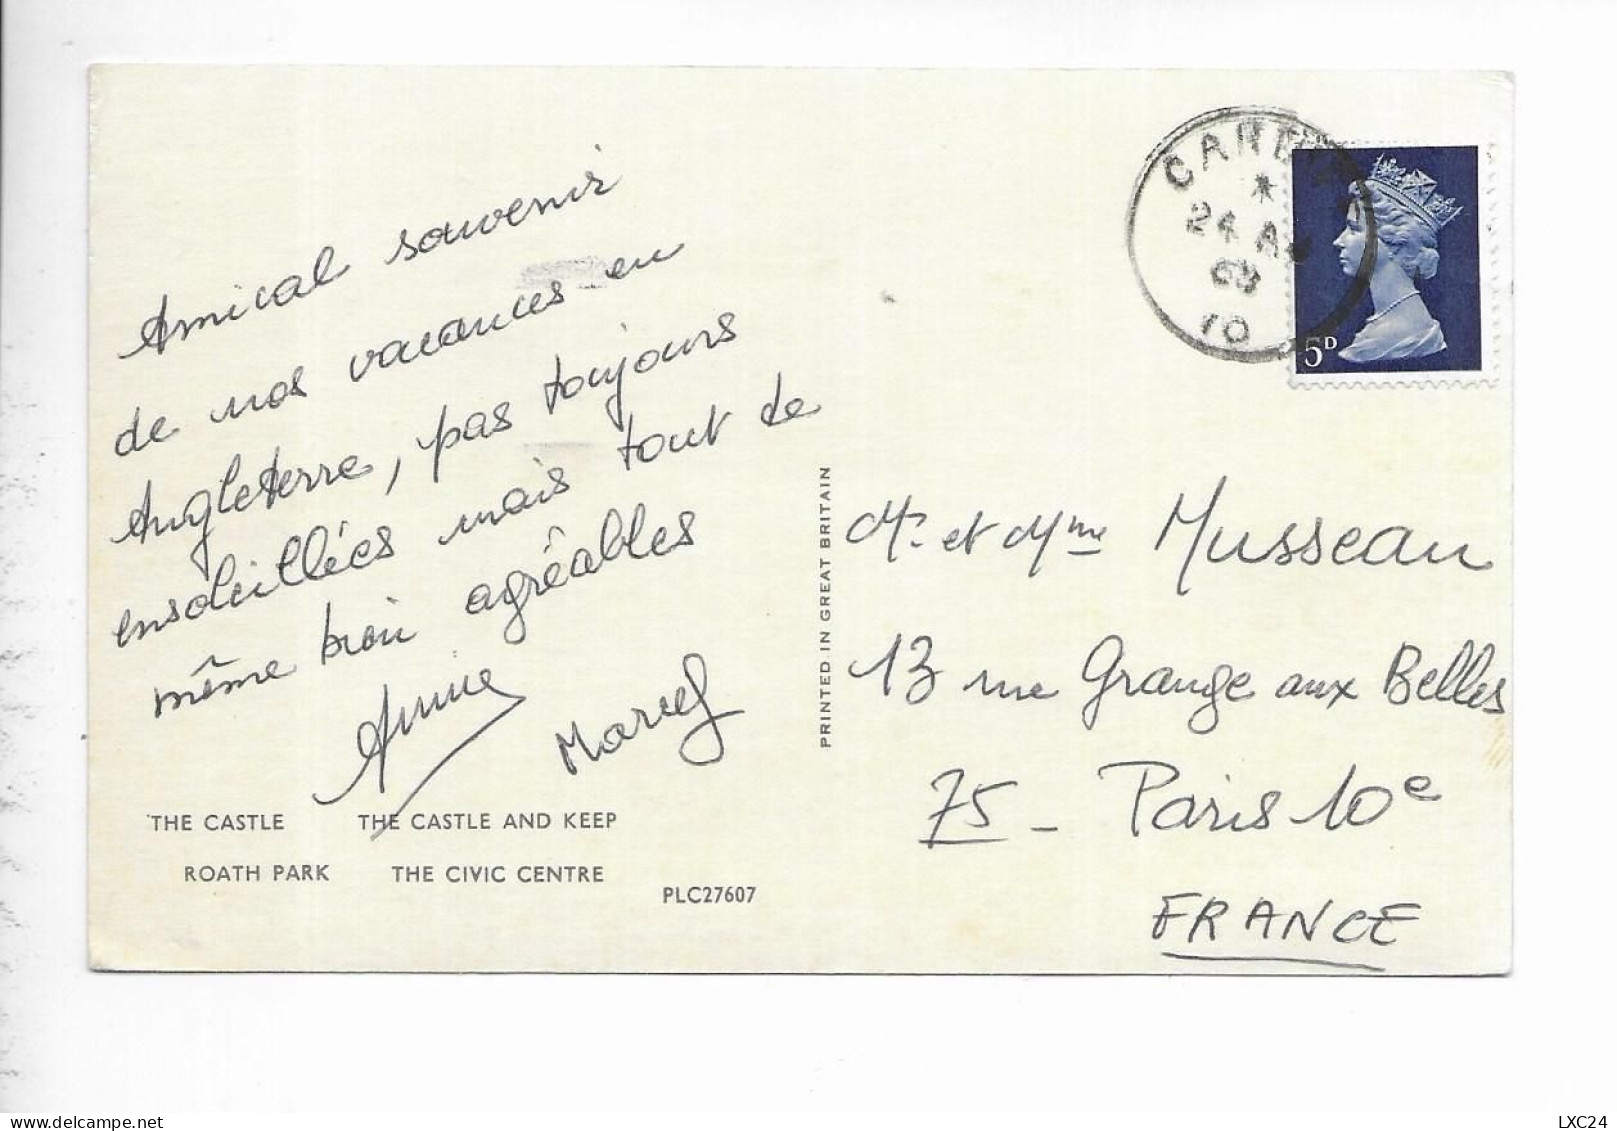 Amical souvenir
de nos vacances en
Angleterre, pas toujours
ensoleillées mais tout de
même bien agréables
Anne
Marcel
THE CASTLE THE CASTLE AND KEEP
ROATH PARK THE CIVIC CENTRE
PLC27607
PRINTED IN GREAT BRITAIN
24
10
5D
Mr et Mme Musseau
13 rue Grange aux Belles
75 - Paris 10e
FRANCE
LXC24